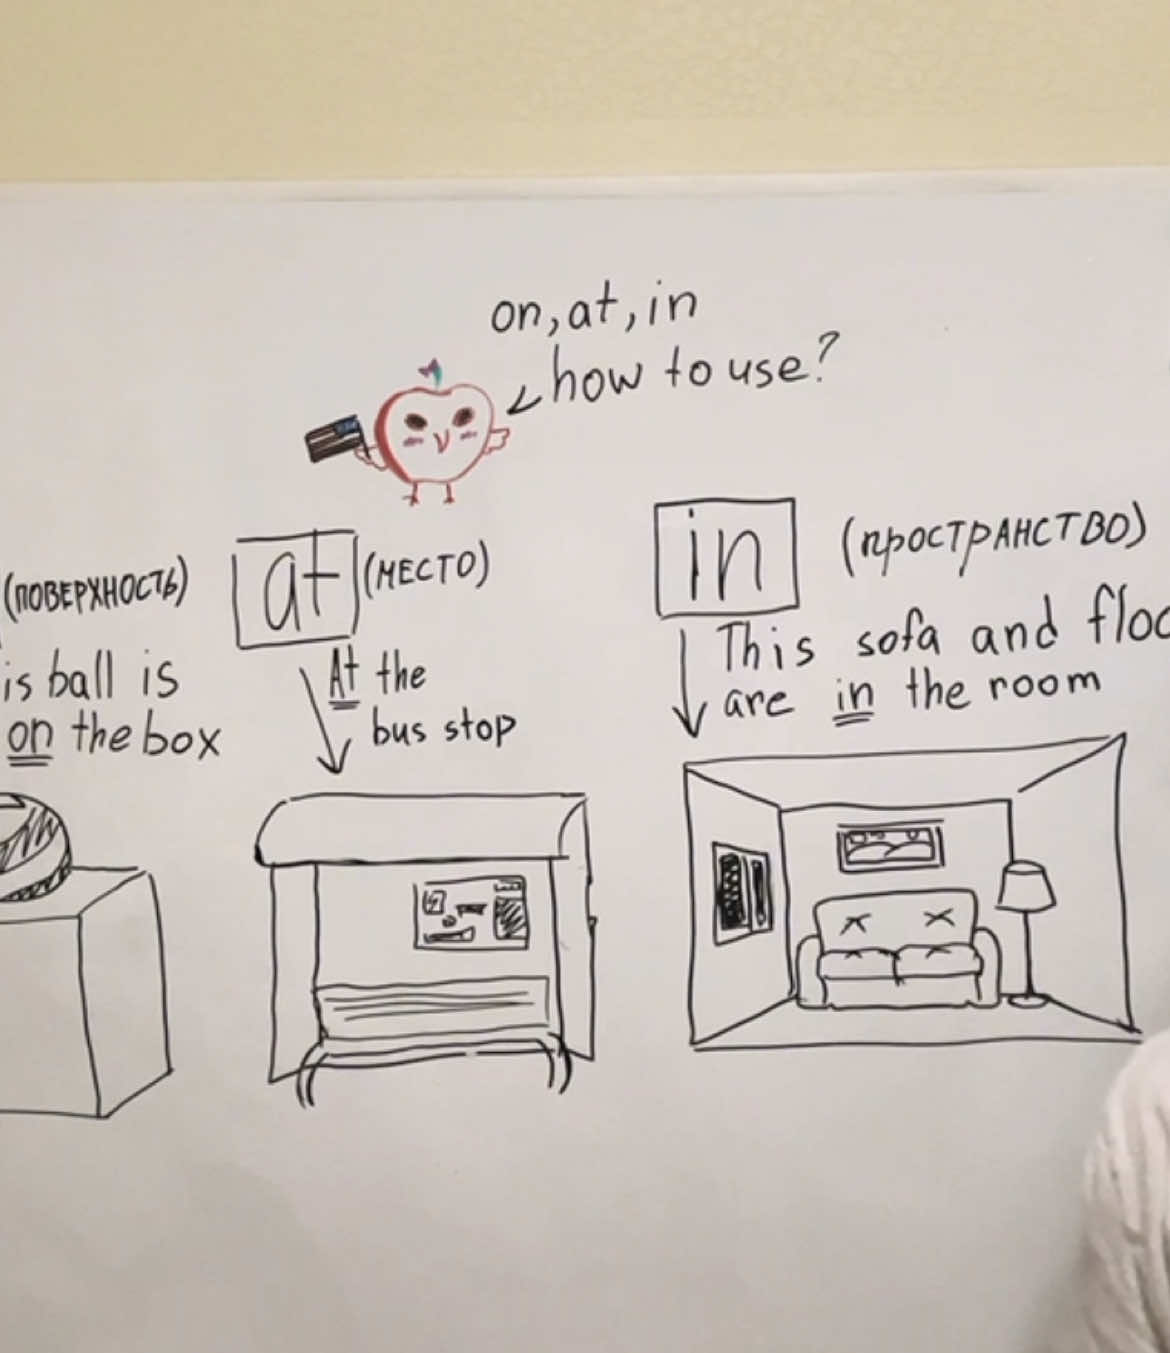 on, at, in
how to use?
(ПОВЕРХНОСТЬ)
is ball is
on the box
at (МЕСТО)
At the
bus stop
in (ПРОСТРАНСТВО)
This sofa and floo
are in the room